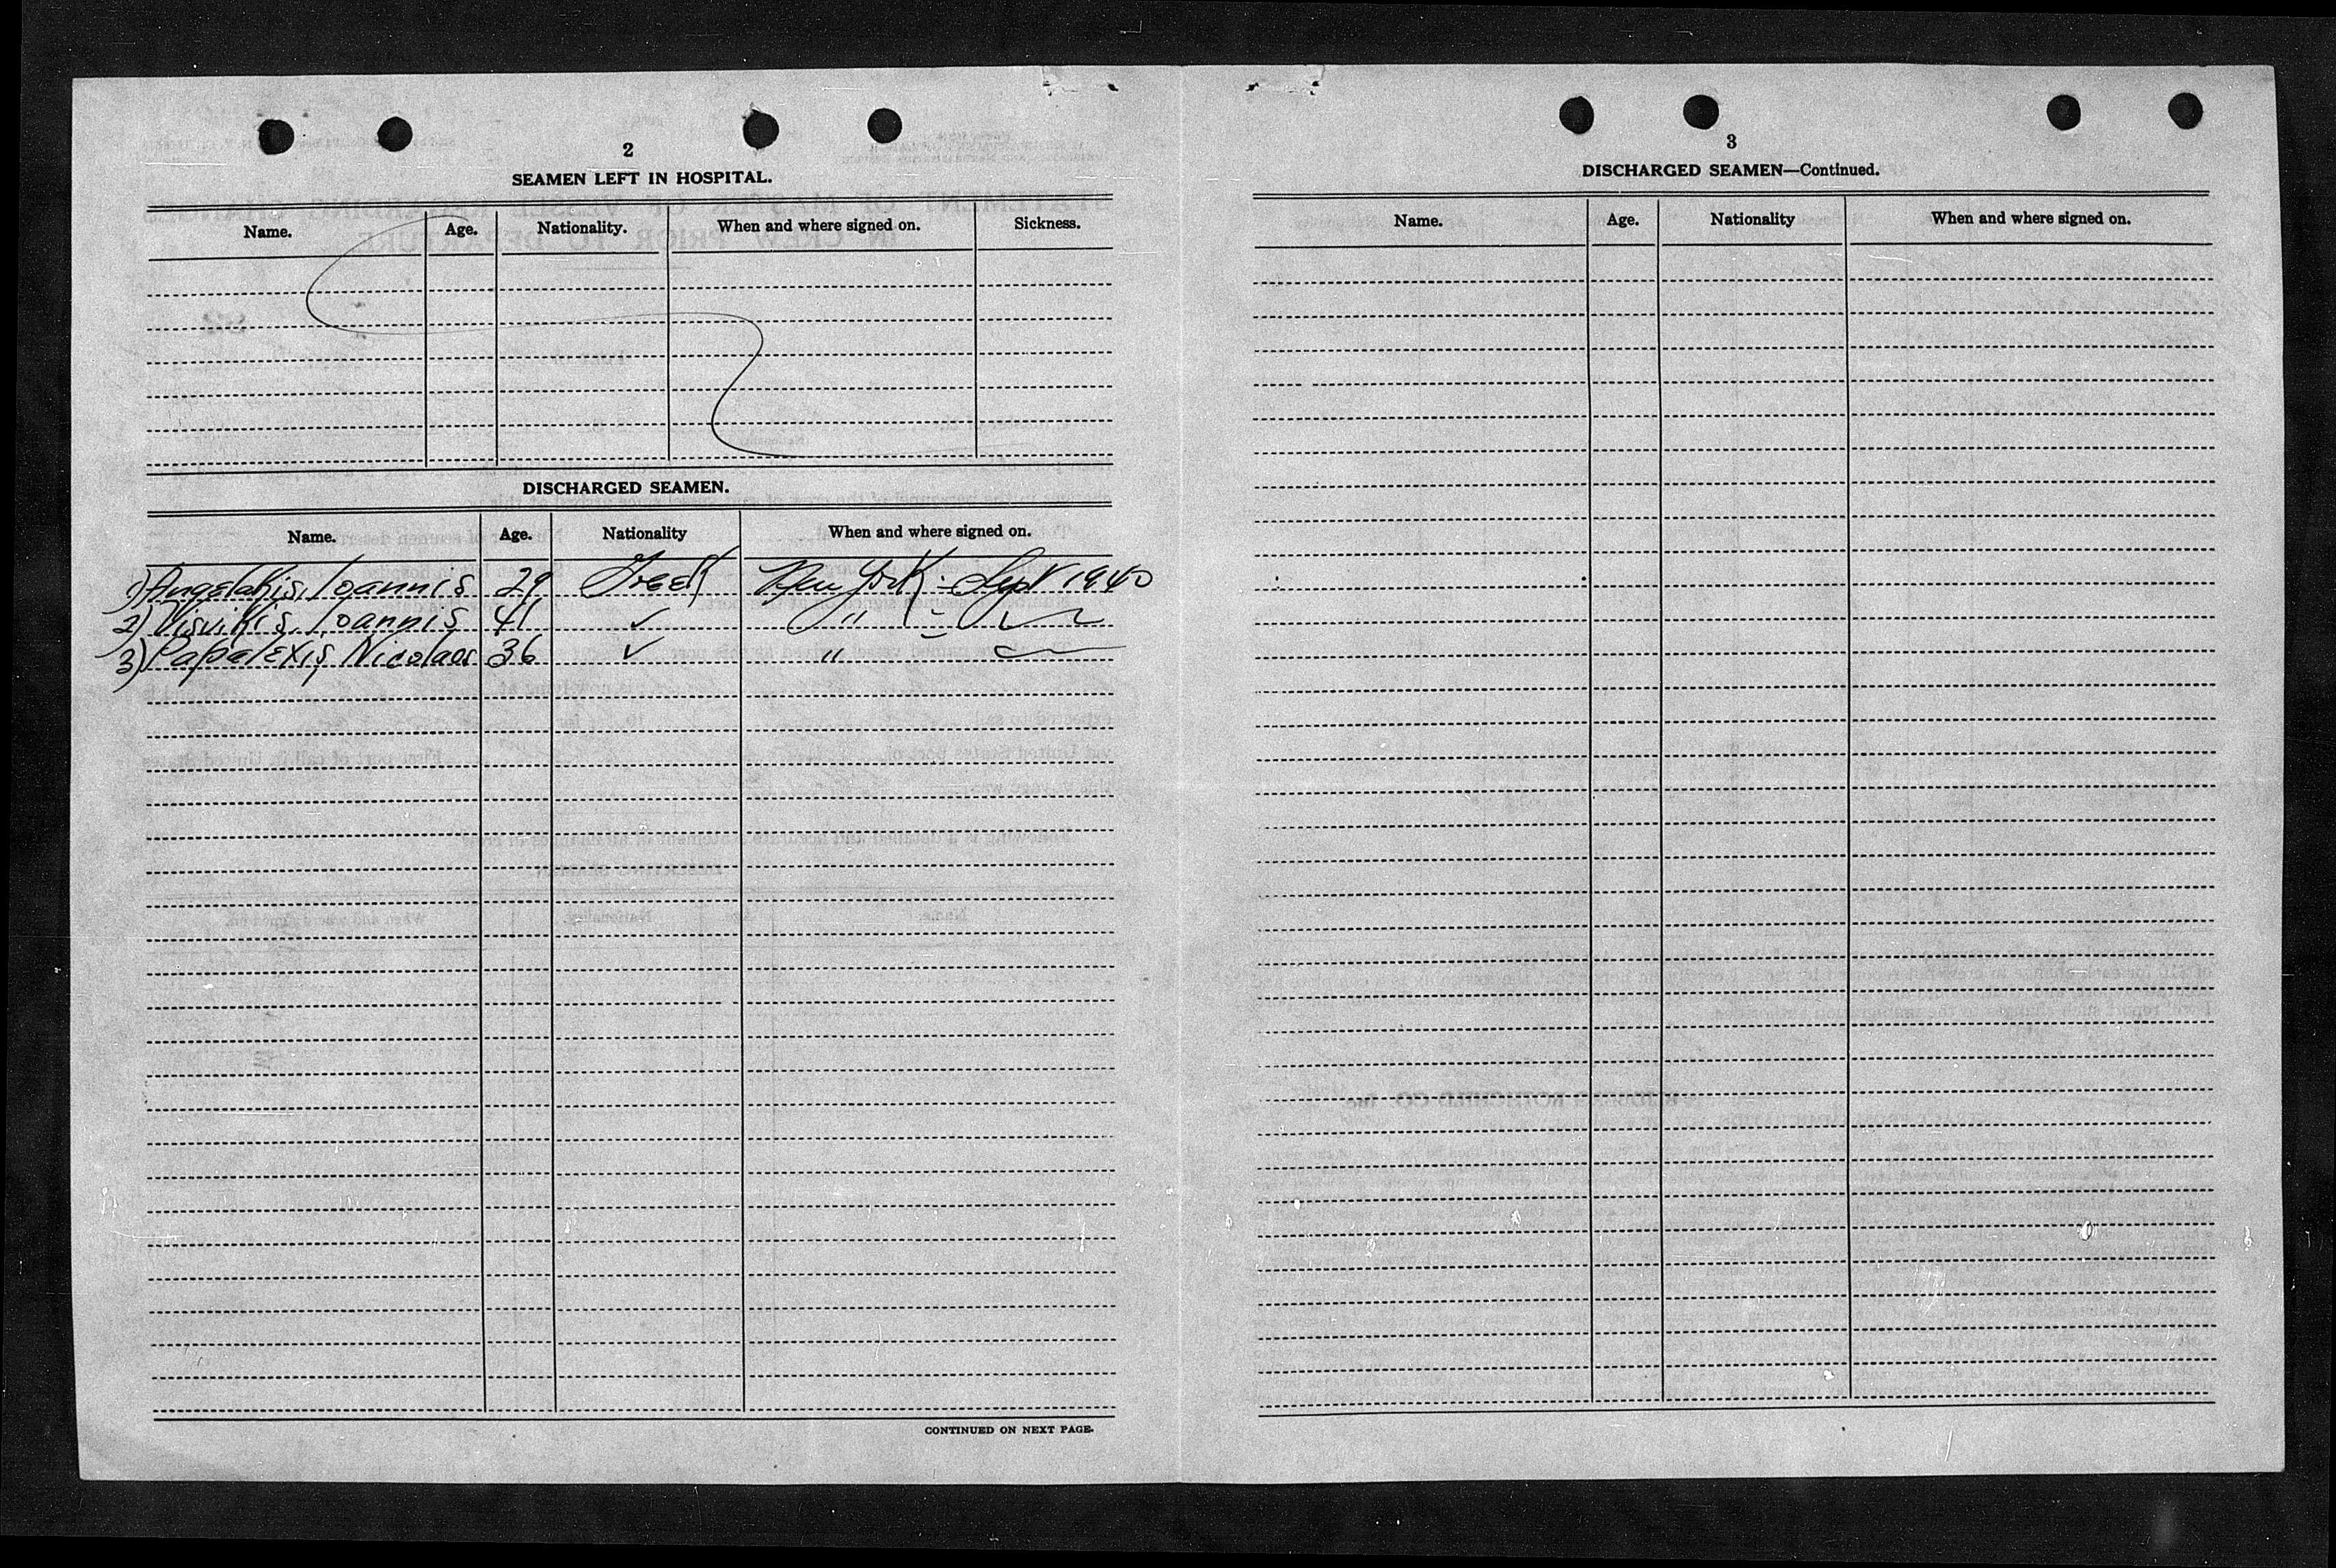 2
SEAMEN LEFT IN HOSPITAL.
Name. Age. Nationality. When and where signed on. Sickness.
DISCHARGED SEAMEN.
Name. Age. Nationality When and where signed on.
1) Angelakis, Ioannis 29 Greek New York - Sept 1940
2) Visvikis, Ioannis 41 ✓ "
3) Papalexis, Nicolaos 36 ✓ "
CONTINUED ON NEXT PAGE.
3
DISCHARGED SEAMEN—Continued.
Name. Age. Nationality When and where signed on.